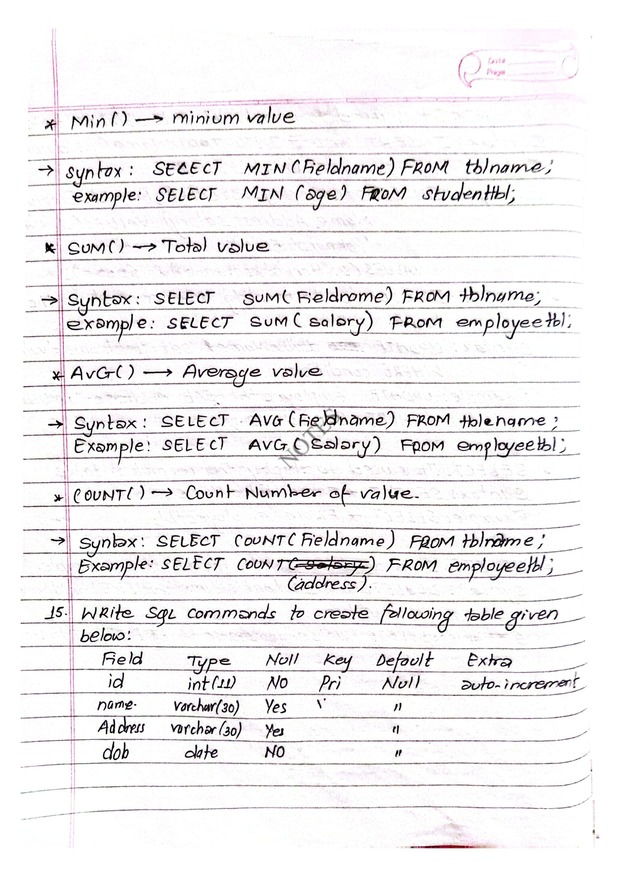 Date
Page
* Min() → minium value
→ Syntax: SELECT MIN(Fieldname) FROM tblname;
example: SELECT MIN (age) FROM studenttbl;
* SUM() → Total value
→ Syntax: SELECT SUM(Fieldname) FROM tblname;
example: SELECT SUM(salary) FROM employeetbl;
* AVG() → Average value
→ Syntax: SELECT AVG(Fieldname) FROM tblename;
Example: SELECT AVG(salary) FROM employeetbl;
NOTES
* COUNT() → Count Number of value.
→ Syntax: SELECT COUNT(Fieldname) FROM tblname;
Example: SELECT COUNT(salary) FROM employeetbl;
(address).
15. Write SQL commands to create following table given
below:
Field Type Null Key Default Extra
id int(11) NO Pri Null auto-increment
name. varchar(30) Yes "
Address varchar(30) Yes "
dob date NO "